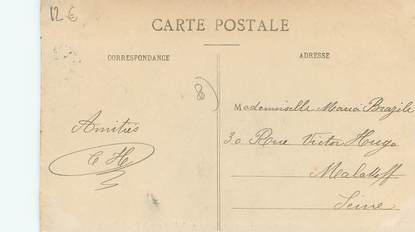 12 €
CARTE POSTALE
CORRESPONDANCE
ADRESSE
8
Amitiés
C H
Mademoiselle Maria Brazile
30 Rue Victor Hugo
Malakoff
Seine